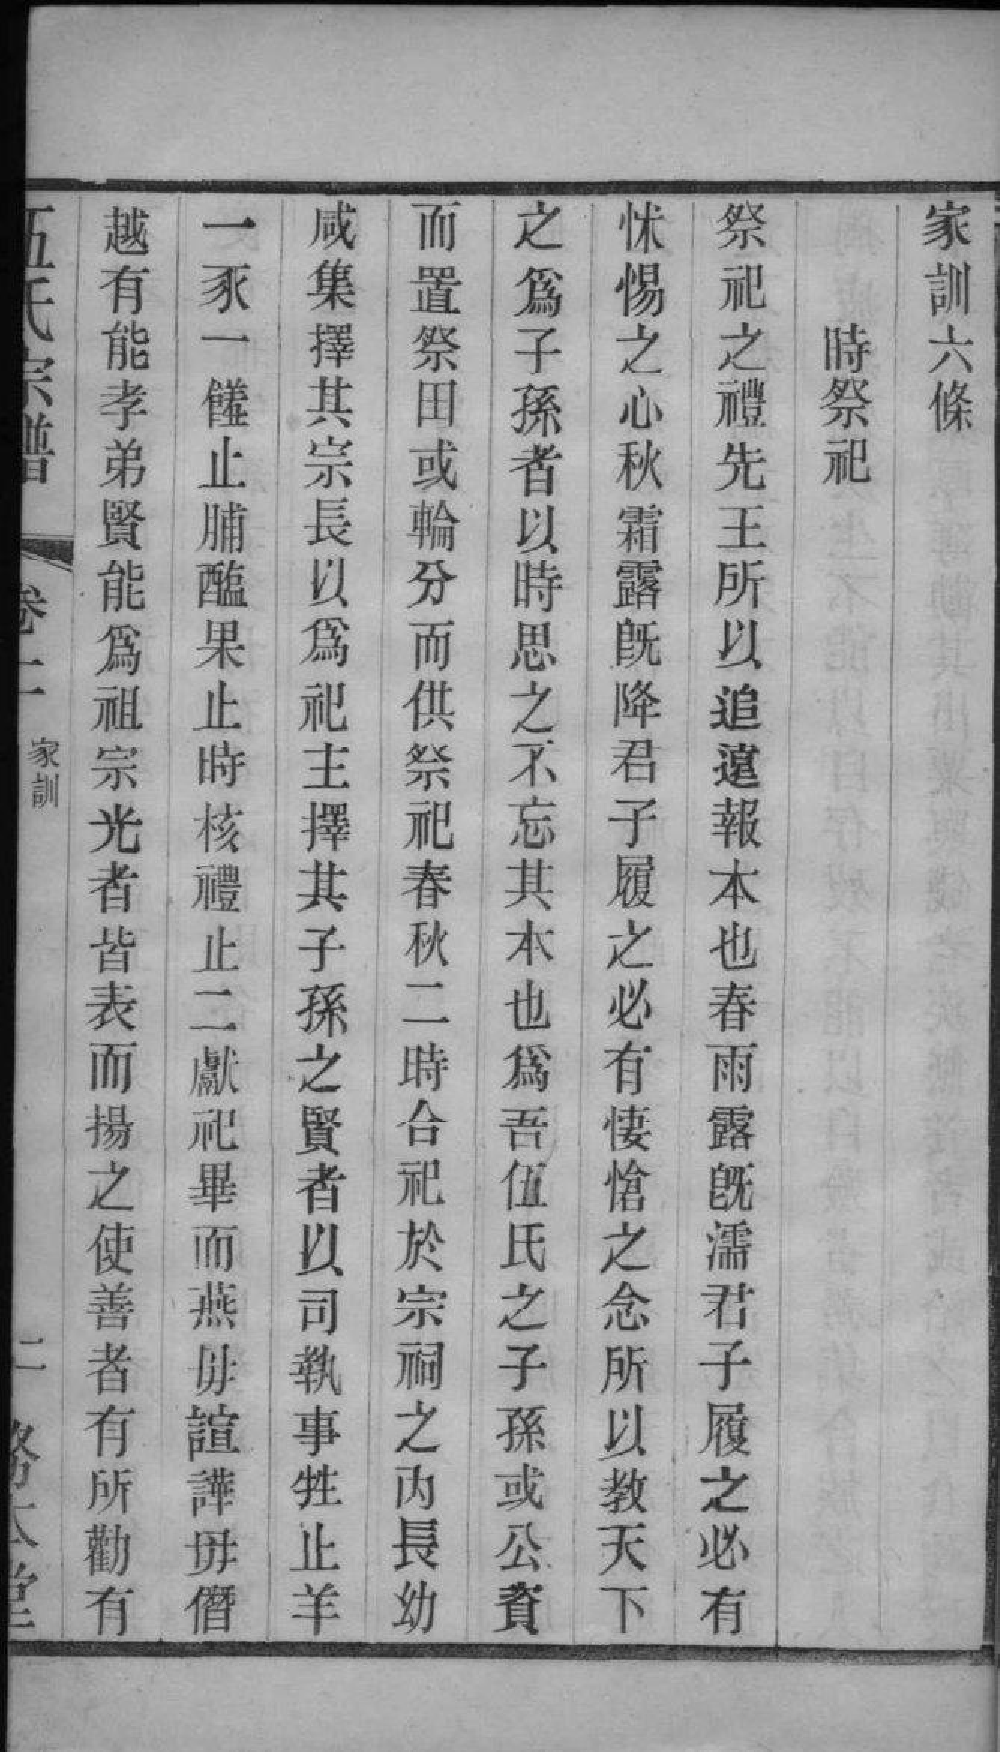 家訓六條
時祭祀
祭祀之禮先王所以追遠報本也春雨露旣濡君子履之必有
怵惕之心秋霜露旣降君子履之必有悽愴之念所以教天下
之爲子孫者以時思之不忘其本也爲吾伍氏之子孫或公資
而置祭田或輪分而供祭祀春秋二時合祀於宗祠之內長幼
咸集擇其宗長以爲祀主擇其子孫之賢者以司執事牲止羊
一豕一饈止脯醢果止時核禮止二獻祀畢而燕毋諠譁毋僭
越有能孝弟賢能爲祖宗光者皆表而揚之使善者有所勸有
伍氏宗譜
卷二
家訓
二
務本堂